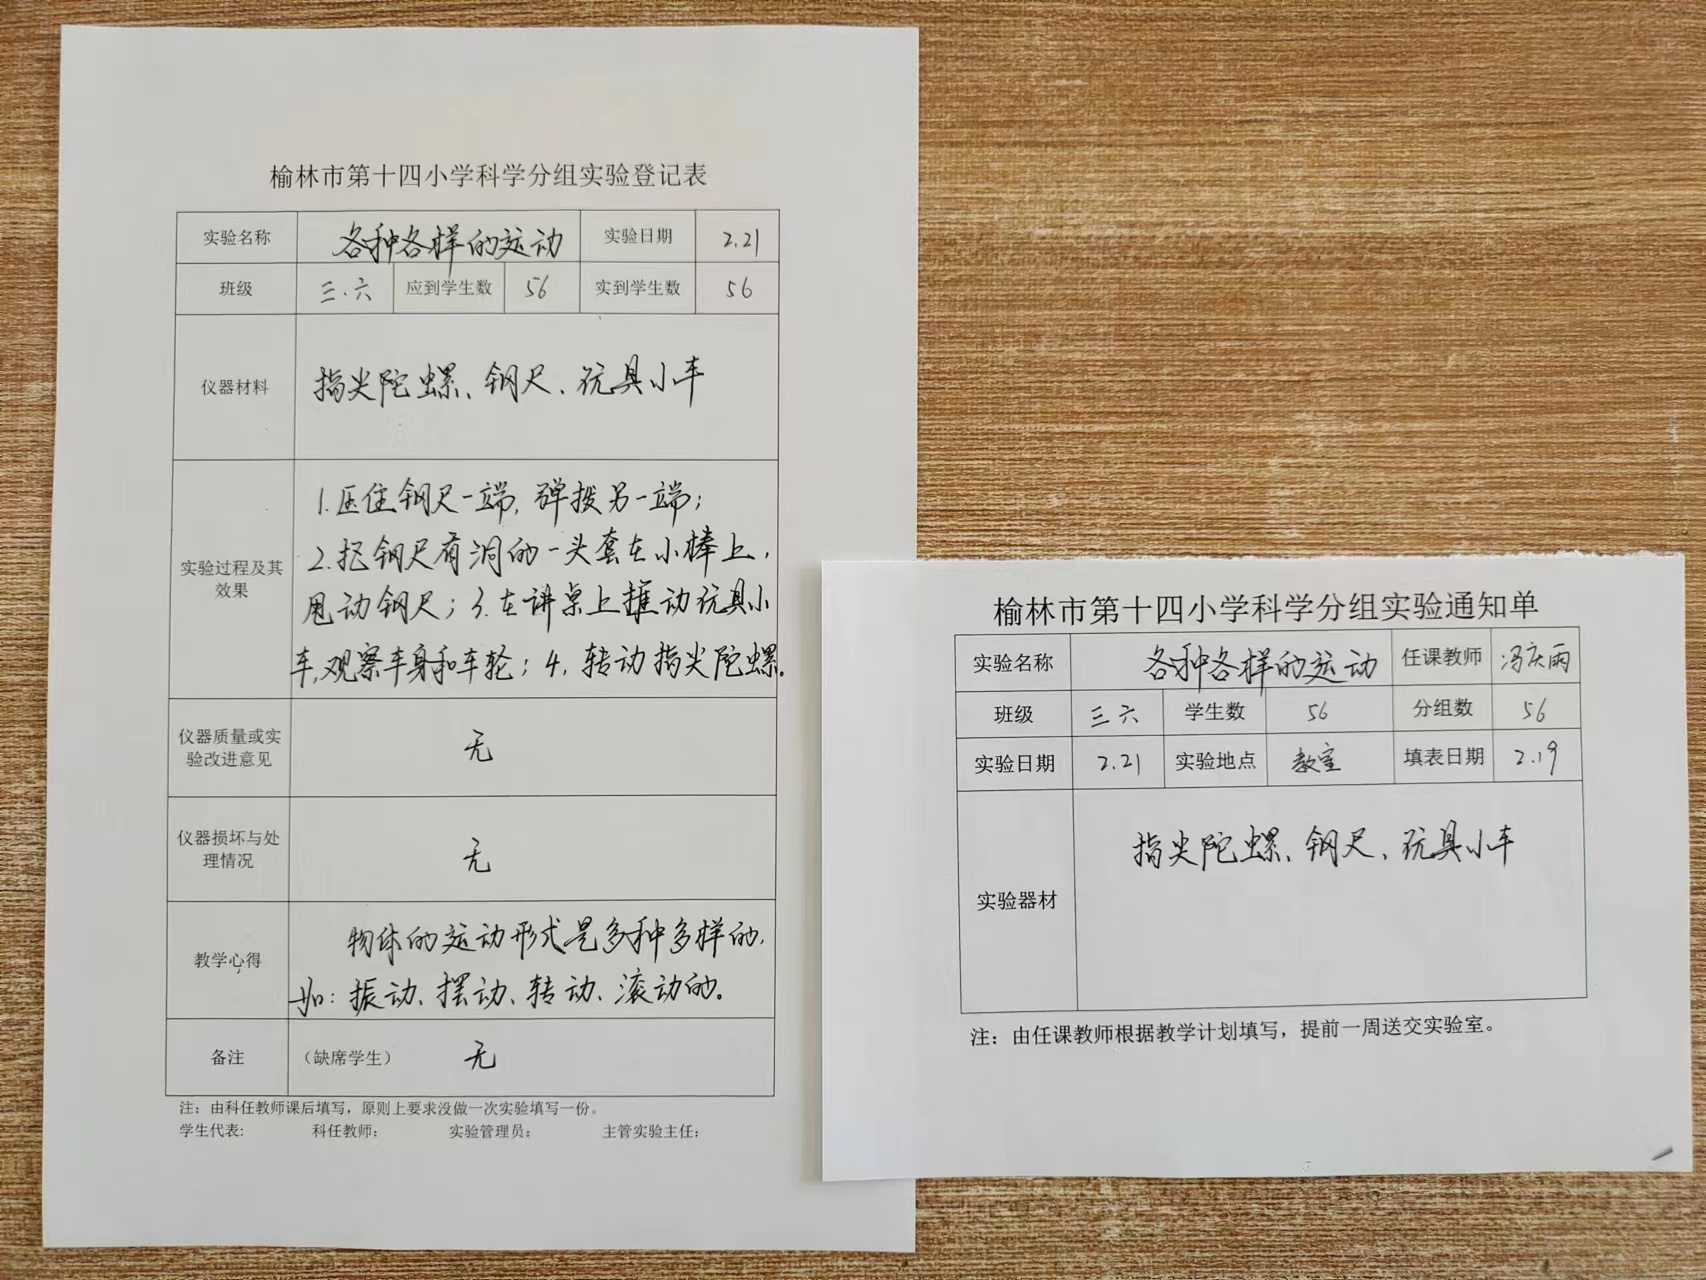 榆林市第十四小学科学分组实验登记表
实验名称 各种各样的运动 实验日期 2.21
班级 三.六 应到学生数 56 实到学生数 56
仪器材料 指尖陀螺、钢尺、玩具小车
实验过程及其效果
1.压住钢尺一端,弹拨另一端;
2.把钢尺有洞的一头套在小棒上,
甩动钢尺;3.在讲桌上推动玩具小
车,观察车身和车轮;4.转动指尖陀螺.
仪器质量或实验改进意见 无
仪器损坏与处理情况 无
教学心得
物体的运动形式是多种多样的.
如:振动、摆动、转动、滚动的。
备注 (缺席学生) 无
注:由科任教师课后填写,原则上要求没做一次实验填写一份。
学生代表: 科任教师: 实验管理员: 主管实验主任:
榆林市第十四小学科学分组实验通知单
实验名称 各种各样的运动 任课教师 冯庆雨
班级 三六 学生数 56 分组数 56
实验日期 2.21 实验地点 教室 填表日期 2.19
实验器材 指尖陀螺、钢尺、玩具小车
注:由任课教师根据教学计划填写,提前一周送交实验室。